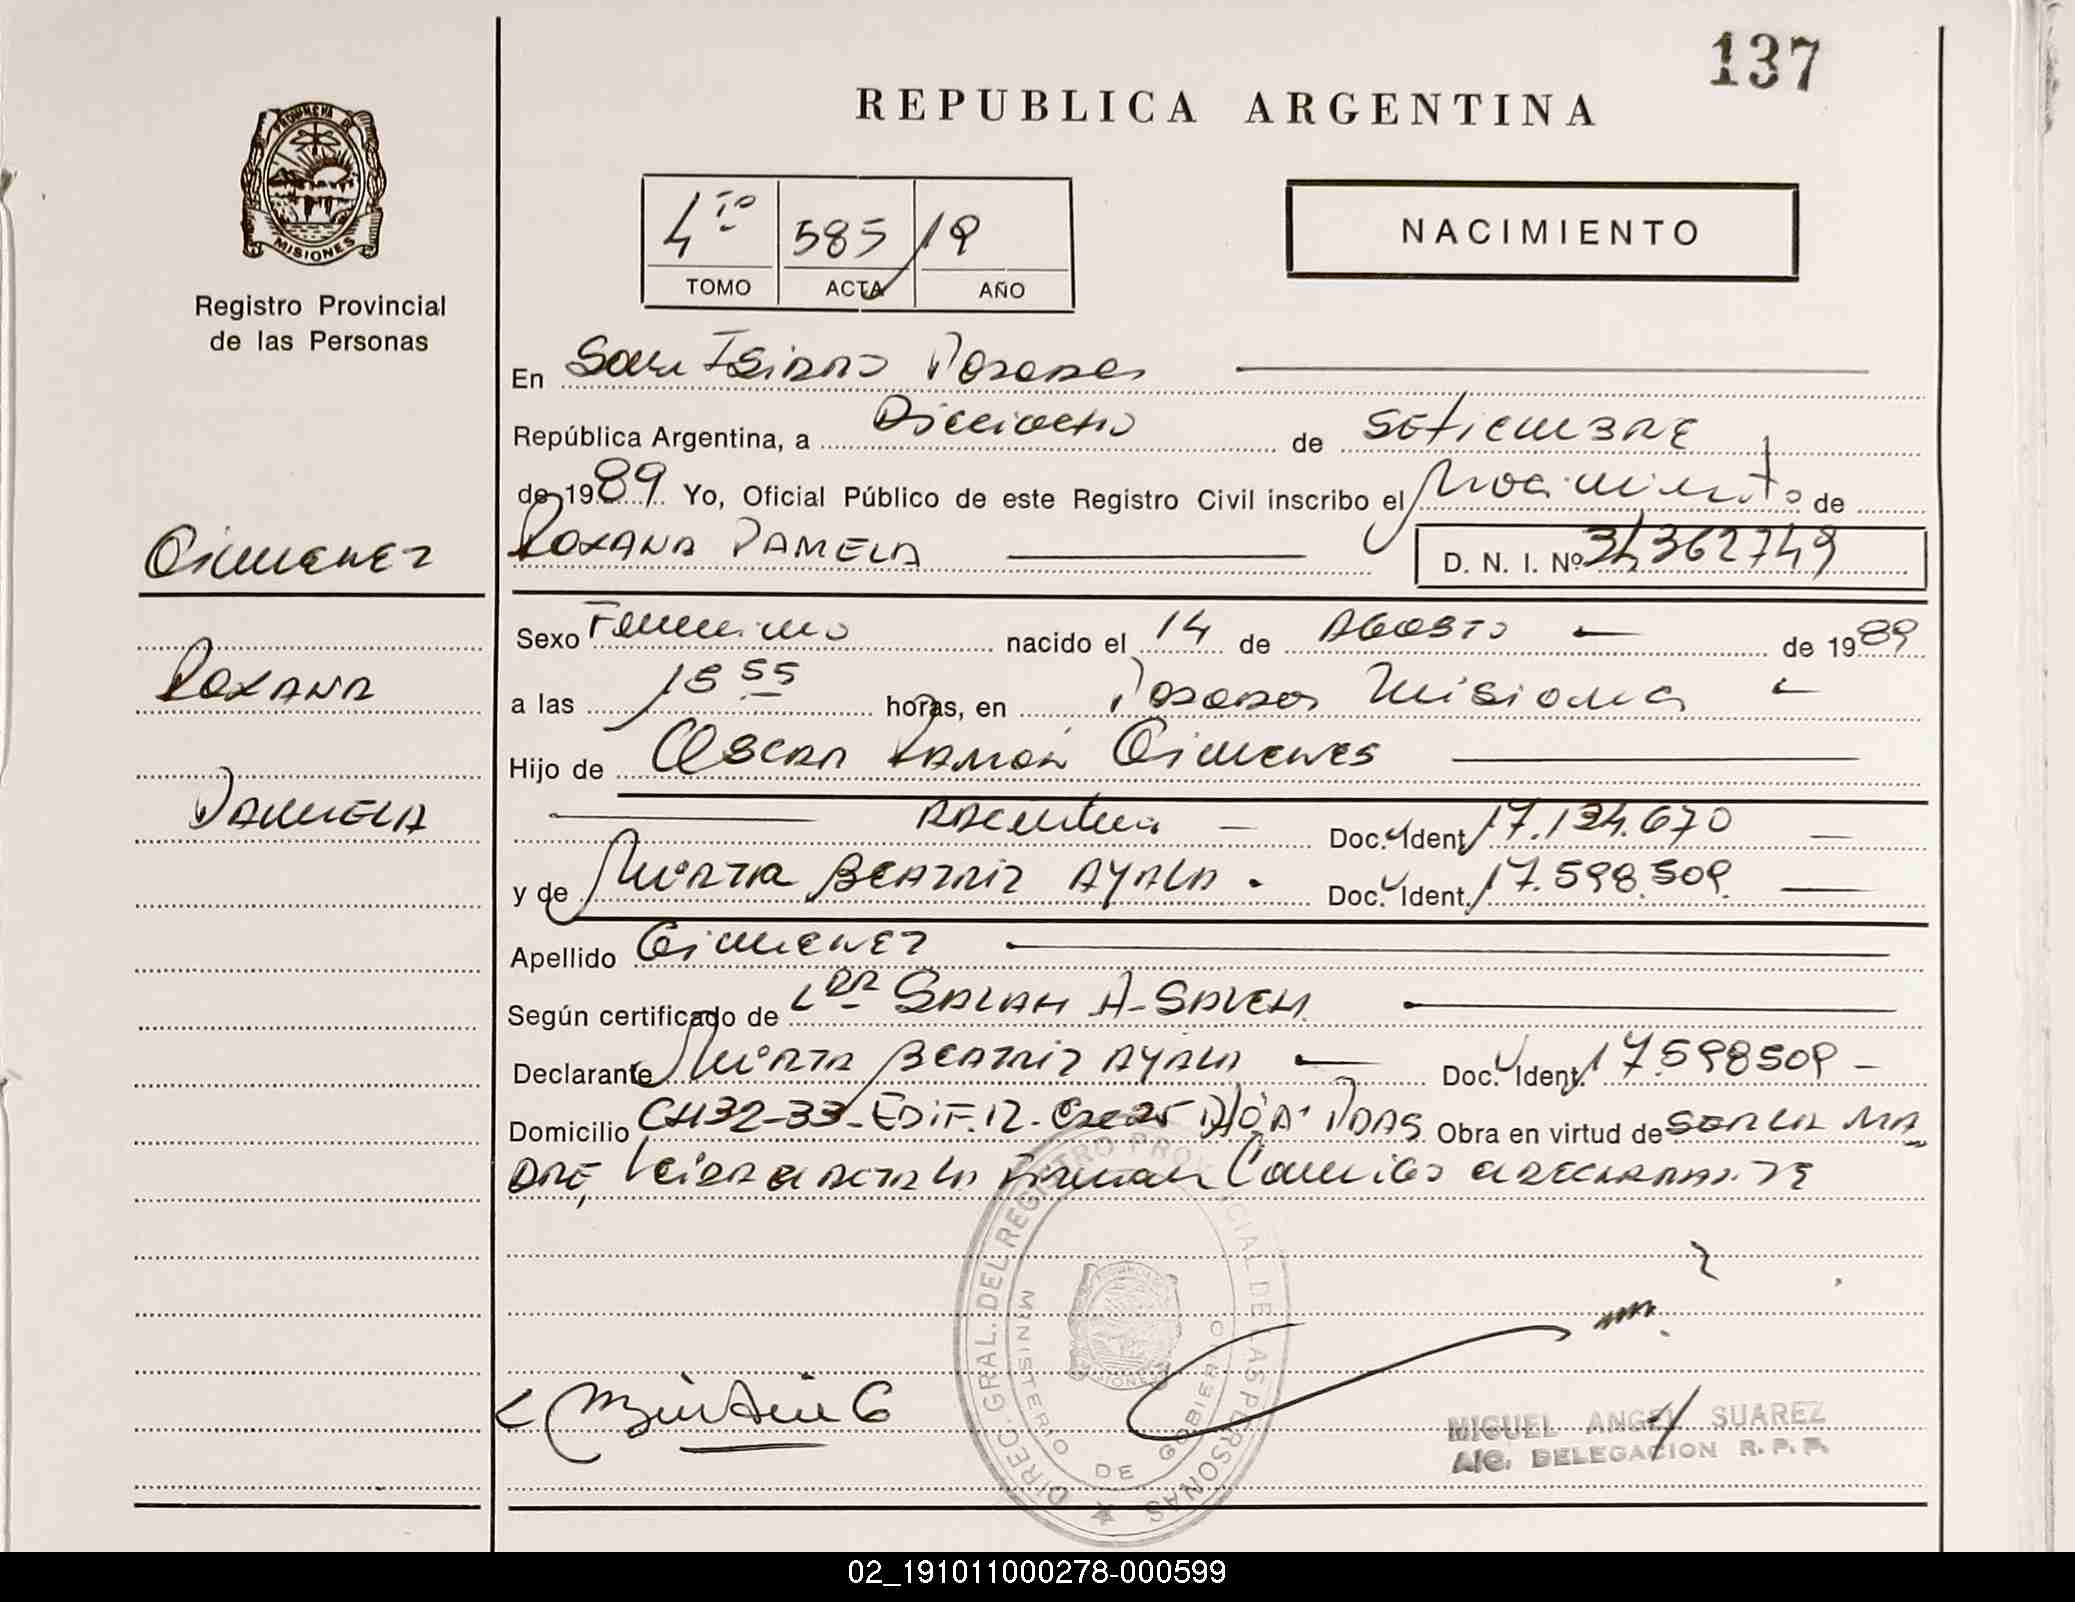 137
REPUBLICA ARGENTINA
PROVINCIA DE
MISIONES
Registro Provincial
de las Personas
4to 585 19
TOMO ACTA AÑO
NACIMIENTO
En San Isidro Posadas
República Argentina, a Dieciocho de Setiembre
de 1989 Yo, Oficial Público de este Registro Civil inscribo el Nacimiento de
Gimenez
Roxana Pamela D. N. I. Nº 34362749
Sexo Femenino nacido el 14 de Agosto de 1989
Roxana
a las 18 55 horas, en Posadas Misiones
Hijo de Oscar Ramón Gimenes
Pamela
Argentina Doc. Ident. 17.134.670
y de Mirta Beatriz Ayala. Doc. Ident. 17.598.509.
Apellido Gimenez
Según certificado de Salah A-Saveh
Declarante Mirta Beatriz Ayala Doc. Ident. 17598509
Domicilio CH32-33-Edif. 12. Pdas Obra en virtud de ser la ma
dre, Leida el acta la firman Conmigo el declarante
DIREC. GRAL. DEL REGISTRO PROVINCIAL DE LAS PERSONAS
MINISTERIO DE GOBIERNO
MISIONES
MIGUEL ANGEL SUAREZ
A/C. DELEGACION R. P. P.
02_191011000278-000599